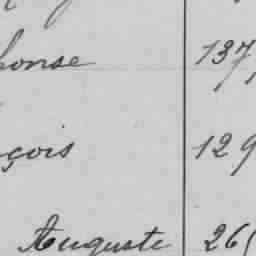 honse 137
çois 129
Auguste 26